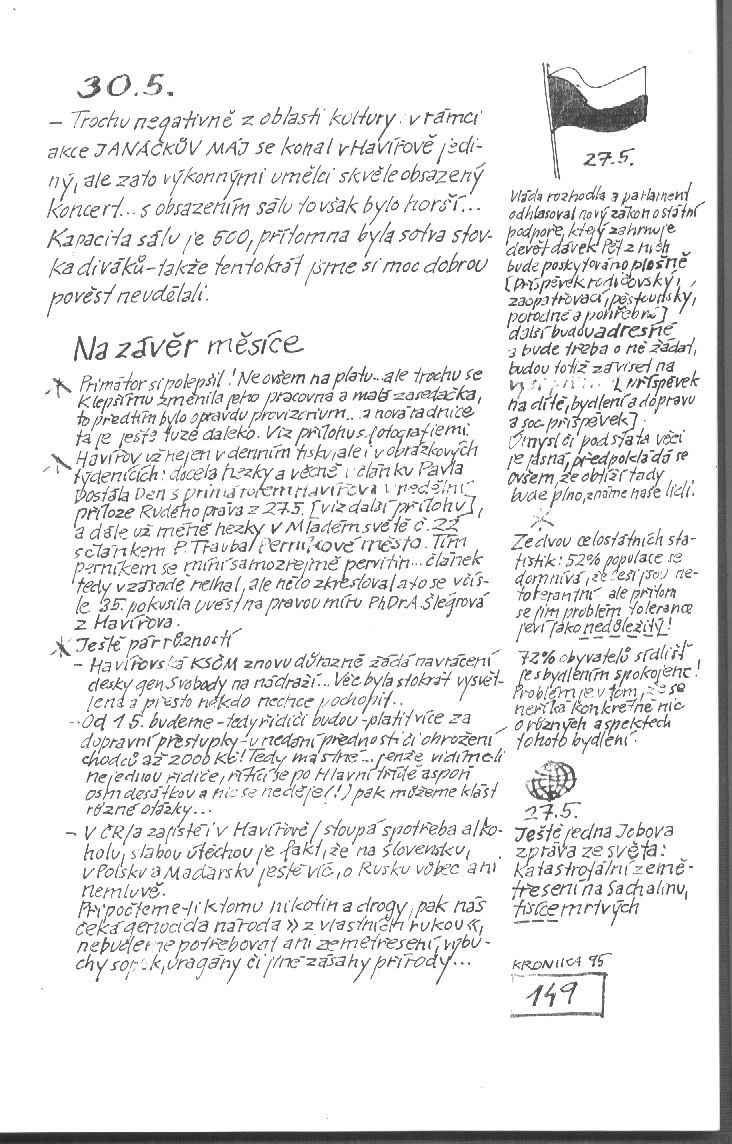 30.5.
– Trochu negativně z oblasti kultury. v rámci
akce JANÁČKŮV MÁJ se konal v Havířově jedi-
ný, ale zato výkonnými umělci skvěle obsazený
koncert... s obsazením sálu to však bylo horší...
Kapacita sálu je 500, přítomna byla sotva stov-
ka diváků – takže tentokrát jsme si moc dobrou
pověst neudělali.
Na závěr měsíce
Primátor si polepšil! Ne ovšem na platu... ale trochu se
k lepšímu změnila jeho pracovna a malá zasedačka,
to předtím bylo opravdu provizorium... a nová radnice
ta je ještě tuze daleko. Viz příloha s fotografiemi.
Havířov už nejen v denním tisku, ale i v obrázkových
týdenících: docela hezky a věcně v článku Pavla
Dostála Den s primátorem Havířova v nedělní
příloze Rudého práva z 27.5. [viz další přílohu],
a dále už méně hezky v Mladém světě č. 22
s článkem P. Traubal Perníkové město. Tím
perníkem se míní samozřejmě pervitin... článek
tedy v zásadě nelhal, ale něco zkresloval a to se v čís-
le 35. pokusila uvést na pravou míru PhDr A. Šlégrová
z Havířova.
Ještě pár růzností
– Havířovská KSČM znovu důrazně žádá navrácení
desky gen. Svobody na nádraží... Věc byla stokrát vysvět-
lena a přesto někdo nechce pochopit...
– Od 1.5. budeme – tedy řidiči budou – platit více za
dopravní přestupky – u nedání přednosti či ohrožení
chodců až 2000 Kč! Tedy mastné... jenže vidíme-li
nejednou řidiče, řítící se po Hlavní třídě aspoň
osmdesátkou a nic se neděje (!) pak můžeme klást
různé otázky...
– V ČR /a zajisté i v Havířově/ stoupá spotřeba alko-
holu, slabou útěchou je fakt, že na Slovensku,
v Polsku a Maďarsku ještě víc, o Rusku vůbec ani
nemluvě.
Připočteme-li k tomu nikotin a drogy, pak nás
čeká genocida národa » z vlastních rukou «,
nebudeme potřebovat ani zemětřesení, výbu-
chy sopek, uragány či jiné zásahy přírody...
27.5.
Vláda rozhodla a parlament
odhlasoval nový zákon o státní
podpoře, který zahrnuje
devět dávek. Pět z nich
bude poskytováno plošně
[příspěvek rodičovský,
zaopatřovací, pěstounský,
porodné a pohřební]
další budou adresné
a bude třeba o ně žádat,
budou totiž záviset na
[příspěvek
na dítě, bydlení a dopravu
a soc. příspěvek].
Úmysl či podstata věci
je jasná, předpokládá se
ovšem, že obtíží tady
bude plno, známe naše lidi.
Ze dvou celostátních sta-
tistik: 52% populace se
domnívá, že Češi jsou ne-
tolerantní ale přitom
se jim problém tolerance
jeví jako nedůležitý!
72% obyvatelů sídlišť
je s bydlením spokojeno!
Problém je v tom, že se
neříká konkrétně nic
o různých aspektech
tohoto bydlení.
27.5.
Ještě jedna Jobova
zpráva ze světa:
Katastrofální země-
třesení na Sachalinu,
tisíce mrtvých
KRONIKA 95
149